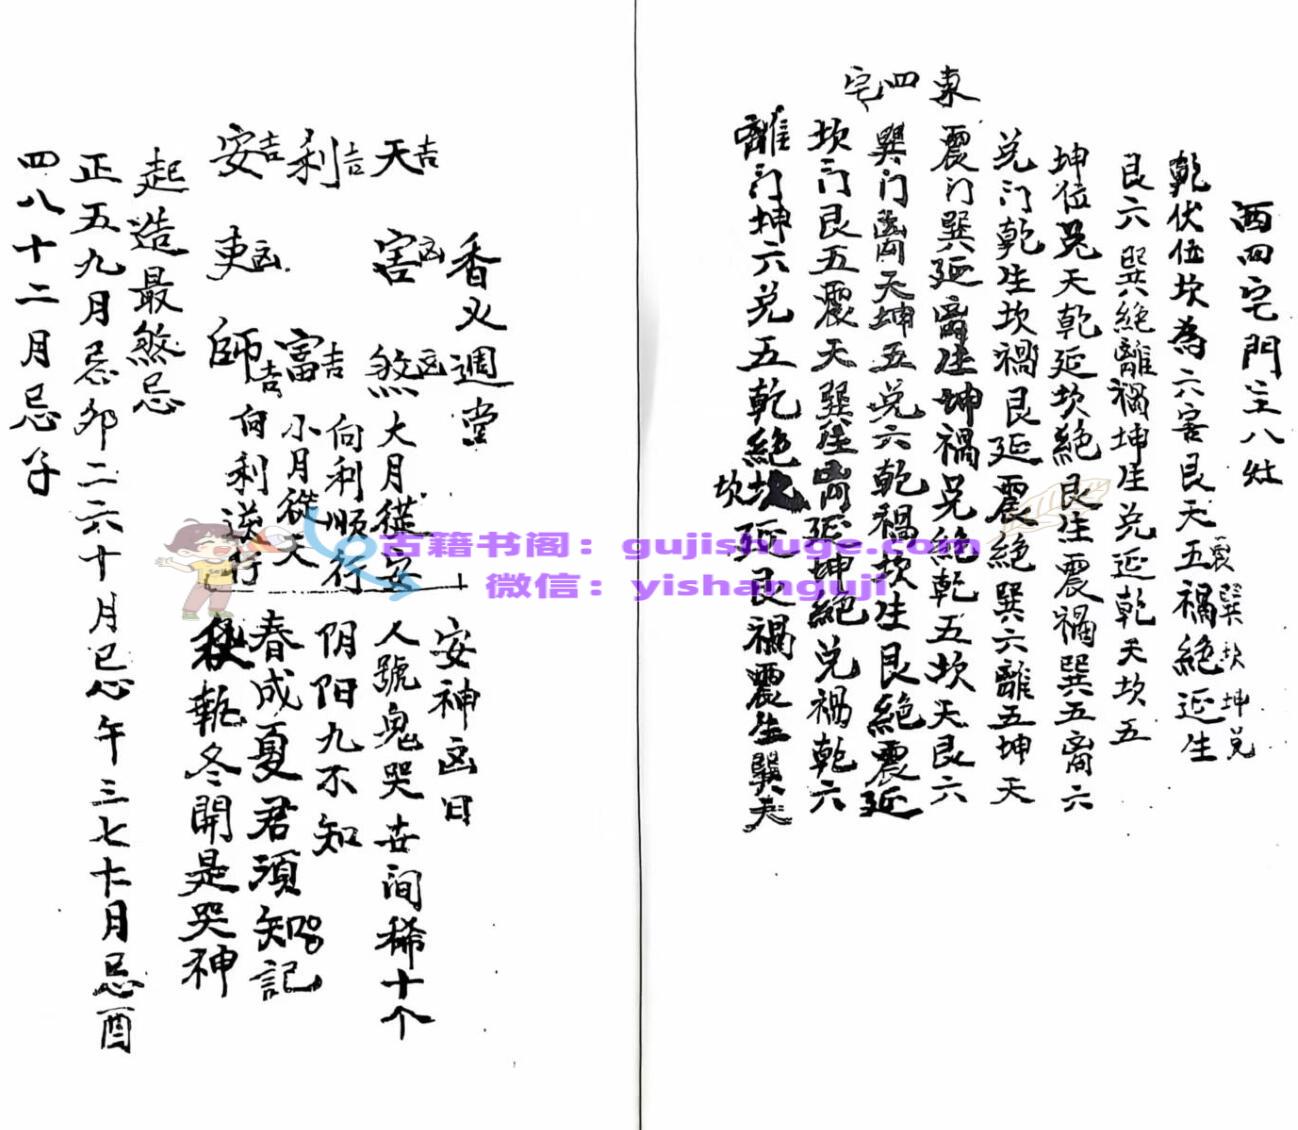 西四宅門主八灶
乾伏位坎為六害艮天五禍絕延生
震巽坎坤兑
艮六巽絕離禍坤生兑延乾天坎五
坤位兑天乾延坎絕艮生震禍巽五离六
兑门乾生坎禍艮延震絕巽六離五坤天
東四宅
震门巽延离生坤禍兑絕乾五坎天艮六
巽门离天坤五兑六乾禍坎生艮絕震延
坎门艮五震天巽生离延坤絕兑禍乾六
離门坤六兑五乾絕坎延艮禍震生巽天
坎
香火週堂
天吉 害凶 煞凶
利吉 富吉
安吉 凶 師吉
大月從安
向利順行
小月從天
向利逆行
安神凶日
人號鬼哭世间稀十个
阴阳九不知
春成夏君須知記
秋執冬開是哭神
起造最煞忌
正五九月忌卯二六十月忌午三七十一月忌酉
四八十二月忌子
古籍书阁：gujishuge.com
微信：yishanguji